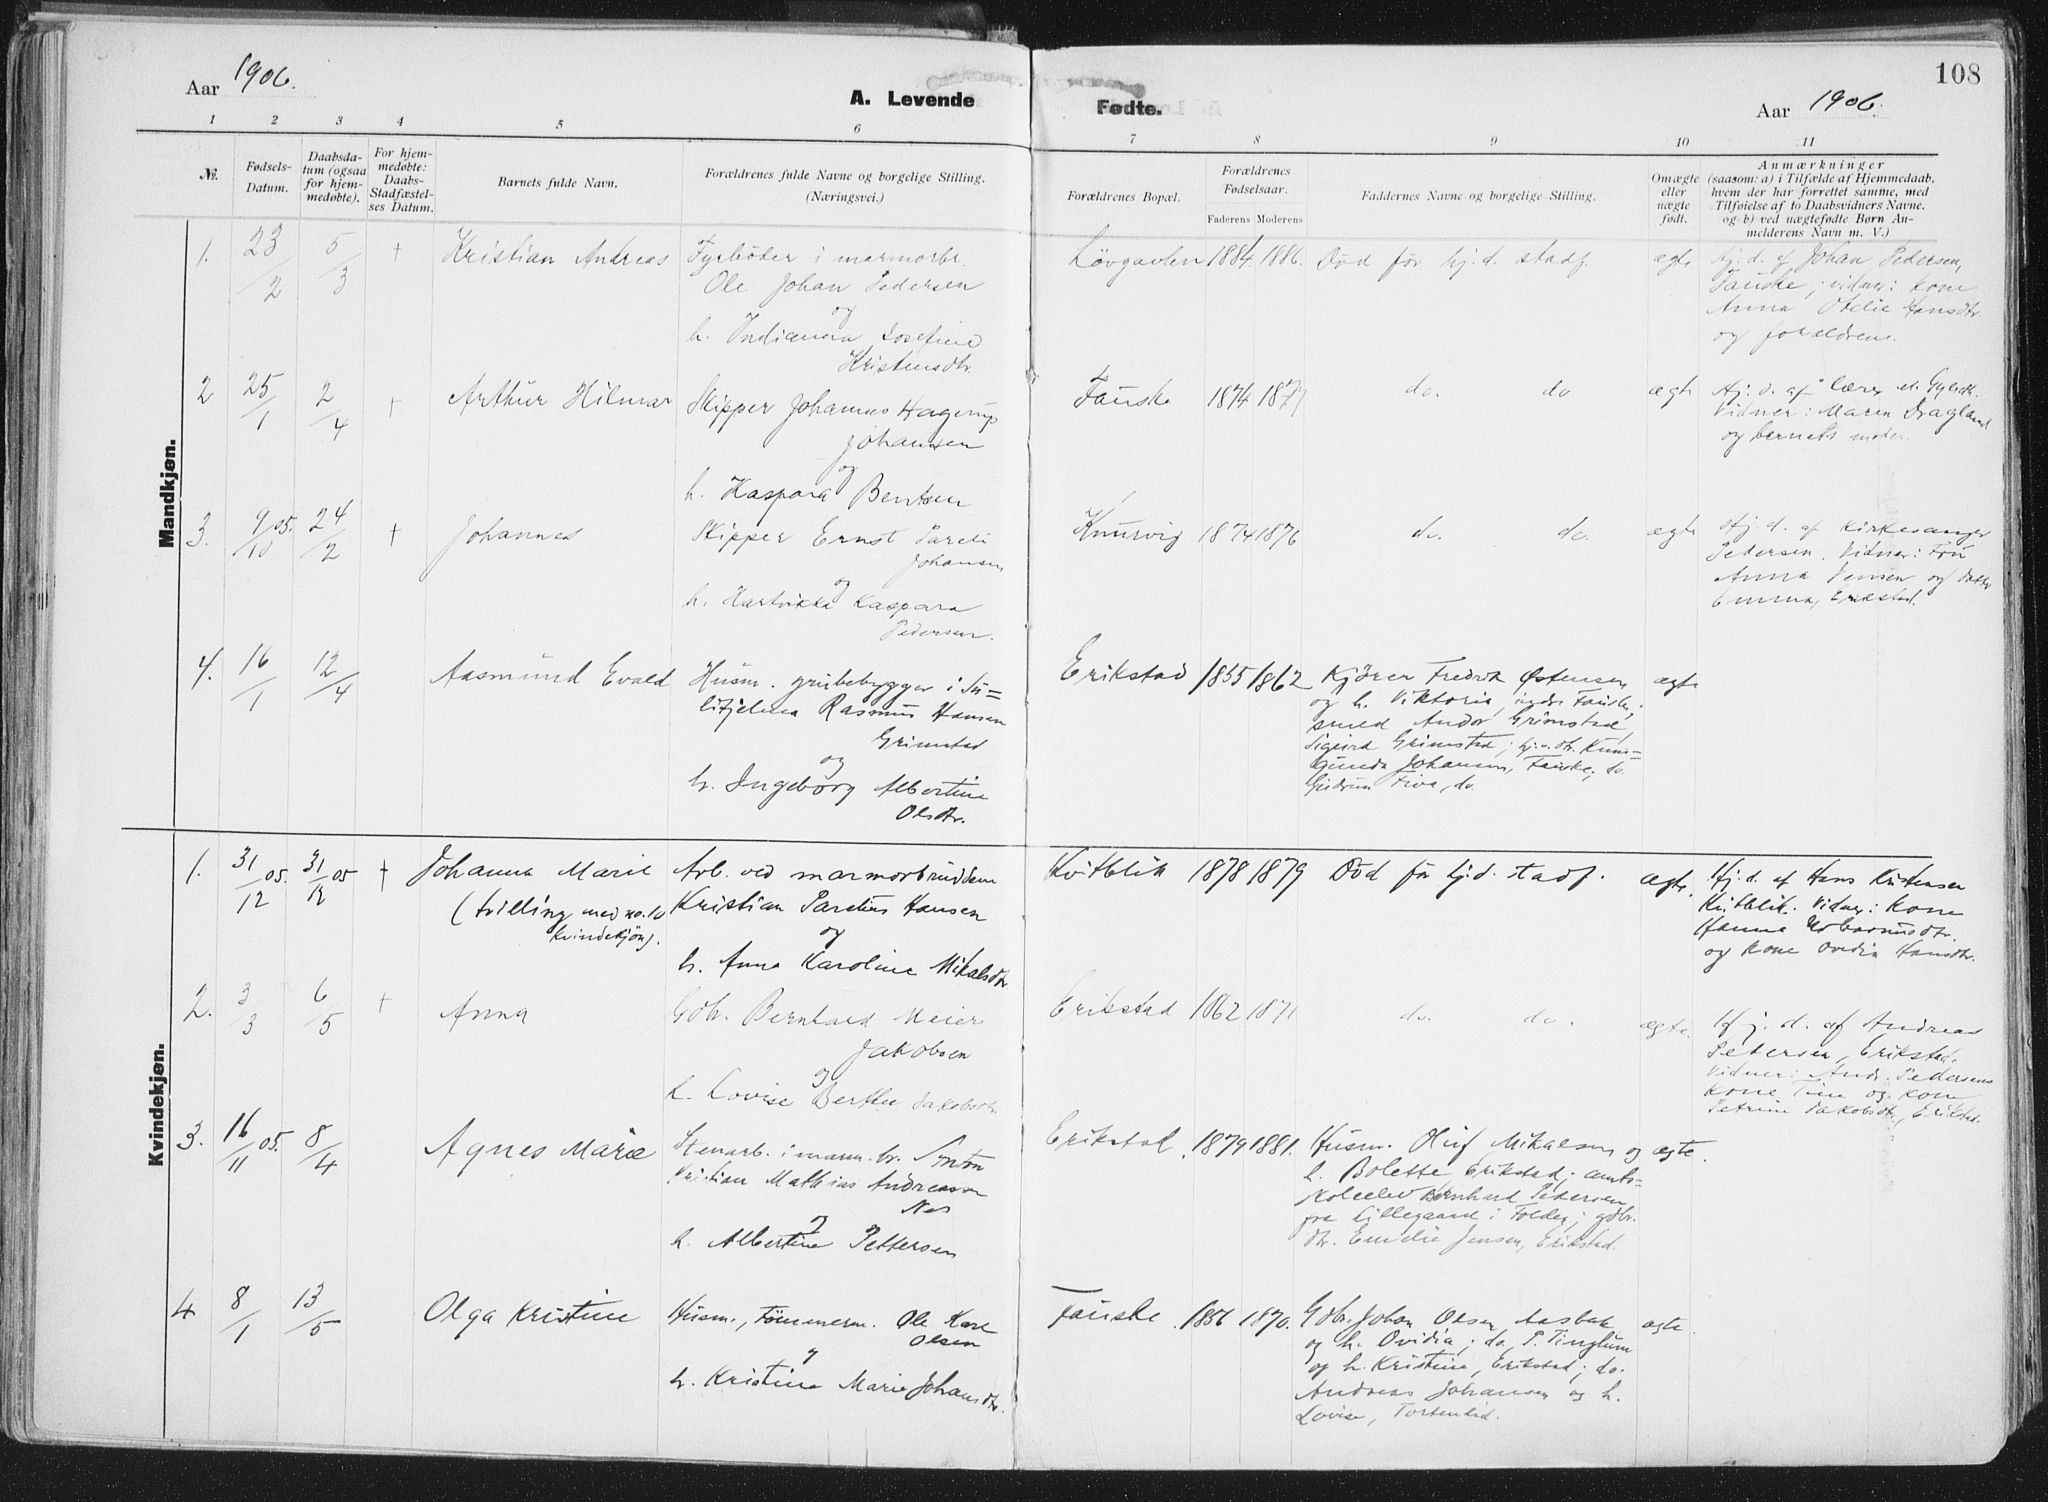 Aar 1906.
A. Levende
Fødte.
Aar 1906.
108
1 2 3 4 5 6 7 8 9 10 11
№.
Fødsels-
Datum.
Daabsda-
tum (ogsaa
for hjem-
medøbte).
For hjem-
medøbte:
Daabs-
Stadfæstel-
ses Datum.
Barnets fulde Navn.
Forældrenes fulde Navne og borgelige Stilling.
(Næringsvei.)
Forældrenes Bopæl.
Forældrenes
Fødselsaar.
Faderens Moderens
Faddernes Navne og borgelige Stilling.
Omægte
eller
uægte
født.
Anmærkninger
(saasom: a) i Tilfælde af Hjemmedaab,
hvem der har forrettet samme, med
Tilføielse af to Daabsvidners Navne.
og b) ved uægtefødte Børn An-
melderens Navn m. V.)
Mandkjøn.
1. 23/2 5/3 + Kristian Andreas
Fyrbøder i marmorbr.
Ole Johan Pedersen
og
h. Indianna Josefine
Kristensdtr.
Løvgavlen 1884. 1886. Død før hj.d. stadf. ægte
Hj. d. af Johan Pedersen,
Fauske; vidner: kone
Anna Otelie Hansdtr.
og forældrene.
2 25/1 2/4 + Arthur Hilmar
Skipper Johannes Hagerup
Johansen
og
h. Kaspara Bentsen
Fauske 1874 1877 do. do ægte
Hj. d. af lærer
Vidner: Maren Dragland
og barnets moder.
3. 9/10 05. 24/2 + Johannes
Skipper Ernst Pareli
Johansen
og
h. Hartvikka Kaspara
Pedersen.
Knurvig 1874 1876 do. do. ægte
Hj. d. af kirkesanger
Pedersen. Vidner: Fru
Anna Jensen og datter
Emma, Erikstad.
4. 16/1 12/4 Aasmund Evald
Husm. grubebygger i Su=
litjelma Rasmus Hansen
Grimstad
og
h. Ingeborg Albertine
Olsdtr.
Erikstad 1855 1862
Kjører Fredrik Østensen
og h. Viktoria, indre Fauske;
smed Andor Grimstad
Sigurd Grimstad;
Johansen, Fauske; do.
Gudrun Five, do.
ægte
Kvindekjøn.
1. 31/12 05. 31/12 05 + Johanna Marie
(tvilling med no. 10
kvindekjøn).
Arb. ved marmorbruddene
Kristian Parelius Hansen
og
h. Anna Karoline Mikalsdtr
Kvitblik 1878 1879 Død før hj.d. stadf. ægte.
Hj. d. af Hans Kristensen
Kvitblik. Vidner: kone
Hanna
og kone Ovidia Hansdtr.
2. 3/3 6/5 + Anna
Gdbr. Bernhard Meier
Jakobsen
og
h. Lovise Berthe Jakobsdtr.
Erikstad 1862 1871 do. do. ægte.
Hj. d. af Andreas
Petersen, Erikstad.
Vidner: Andr. Pedersens
kone Tine og kone
Petrine Jakobsdtr., Erikstad.
3. 16/11 05. 8/4 Agnes Marie
Stenarb. i marm. br. Anton
Kristian Mathias Andreassen
Nes
og
h. Albertine Pettersen
Erikstad. 1879 1881.
Husm. Oluf Mikalsen og
h. Bolette Erikstad; amts=
skoleelev Bernhard Pedersen
fra Lillegaard i Folden; gdbr.
dtr. Emelie Jensen, Erikstad.
ægte.
4 8/1 13/5 Olga Kristine
Husm., tømmerm. Ole Karl
Olsen
og
h. Kristine Marie Johansdtr.
Fauske. 1856 1870.
Gdbr. Johan Olsen Aasbak
og h. Ovidia; do. P. Tinglum
og h. Kristine, Erikstad; do.
Andreas Johansen og h.
Lovise, Tortenlid.
ægte.